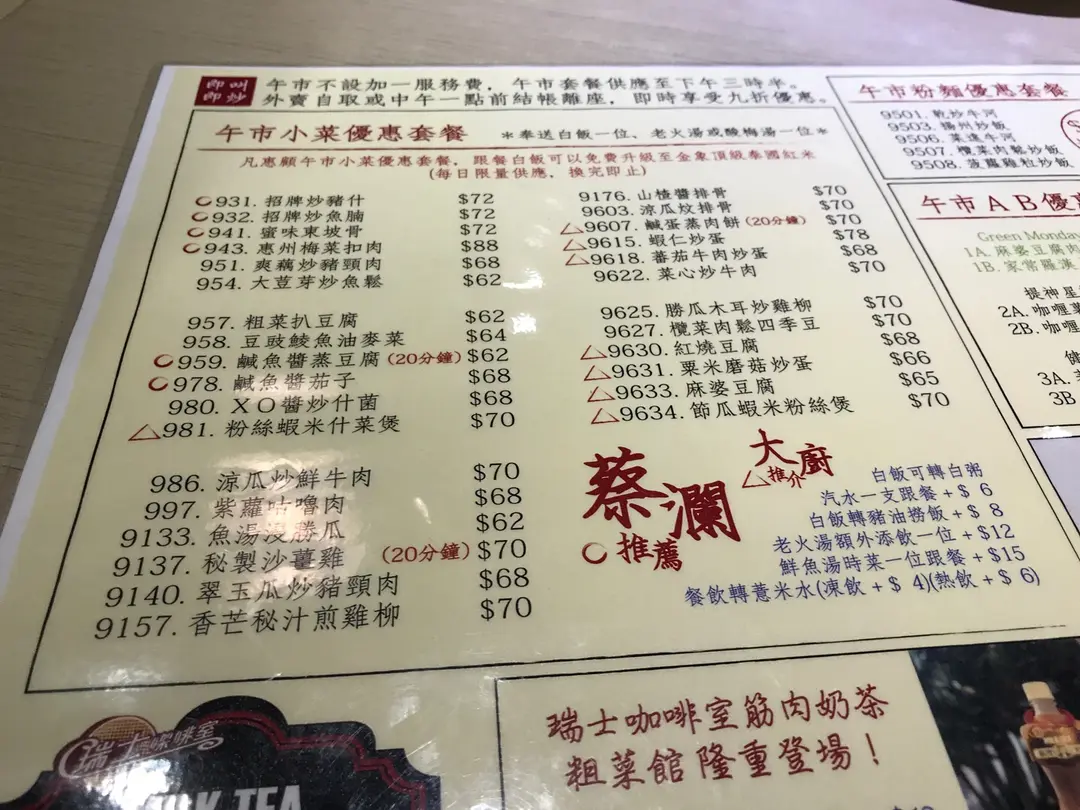 即叫
即炒
午市不設加一服務費，午市套餐供應至下午三時半。
外賣自取或中午一點前結帳離座，即時享受九折優惠。
午市小菜優惠套餐 *奉送白飯一位、老火湯或酸梅湯一位*
凡惠顧午市小菜優惠套餐，跟餐白飯可以免費升級至金象頂級泰國紅米
(每日限量供應，換完即止)
931. 招牌炒豬什 $72
932. 招牌炒魚腩 $72
941. 蜜味東坡骨 $72
943. 惠州梅菜扣肉 $88
951. 爽藕炒豬頸肉 $68
954. 大荳芽炒魚鬆 $62
957. 粗菜扒豆腐 $62
958. 豆豉鯪魚油麥菜 $64
959. 鹹魚醬蒸豆腐 (20分鐘) $62
978. 鹹魚醬茄子 $68
980. XO醬炒什菌 $68
981. 粉絲蝦米什菜煲 $70
986. 涼瓜炒鮮牛肉 $70
997. 紫蘿咕嚕肉 $68
9133. 魚湯浸勝瓜 $62
9137. 秘製沙薑雞 (20分鐘) $70
9140. 翠玉瓜炒豬頸肉 $68
9157. 香芒秘汁煎雞柳 $70
9176. 山楂醬排骨 $70
9603. 涼瓜炆排骨 $70
9607. 鹹蛋蒸肉餅 (20分鐘) $70
9615. 蝦仁炒蛋 $78
9618. 蕃茄牛肉炒蛋 $68
9622. 菜心炒牛肉 $70
9625. 勝瓜木耳炒雞柳 $70
9627. 欖菜肉鬆四季豆 $70
9630. 紅燒豆腐 $68
9631. 粟米磨菇炒蛋 $66
9633. 麻婆豆腐 $65
9634. 節瓜蝦米粉絲煲 $70
蔡瀾
推薦
大廚
推介
白飯可轉白粥
汽水一支跟餐+$ 6
白飯轉豬油撈飯+$ 8
老火湯額外添飲一位+$12
鮮魚湯時菜一位跟餐+$15
餐飲轉薏米水(凍飲+$ 4)(熱飲+$ 6)
午市粉麵優惠套餐
9501. 乾炒牛河
9503. 揚州炒飯
9506. 菜蓮牛河
9507. 欖菜肉鬆炒飯
9508. 菠蘿雞粒炒飯
午市AB優惠
Green Monday
1A. 麻婆豆腐肉
1B. 家常羅漢
提神星
2A. 咖喱
2B. 咖喱
3A.
3B
瑞士咖啡室
MILK TEA
瑞士咖啡室筋肉奶茶
粗菜館隆重登場！